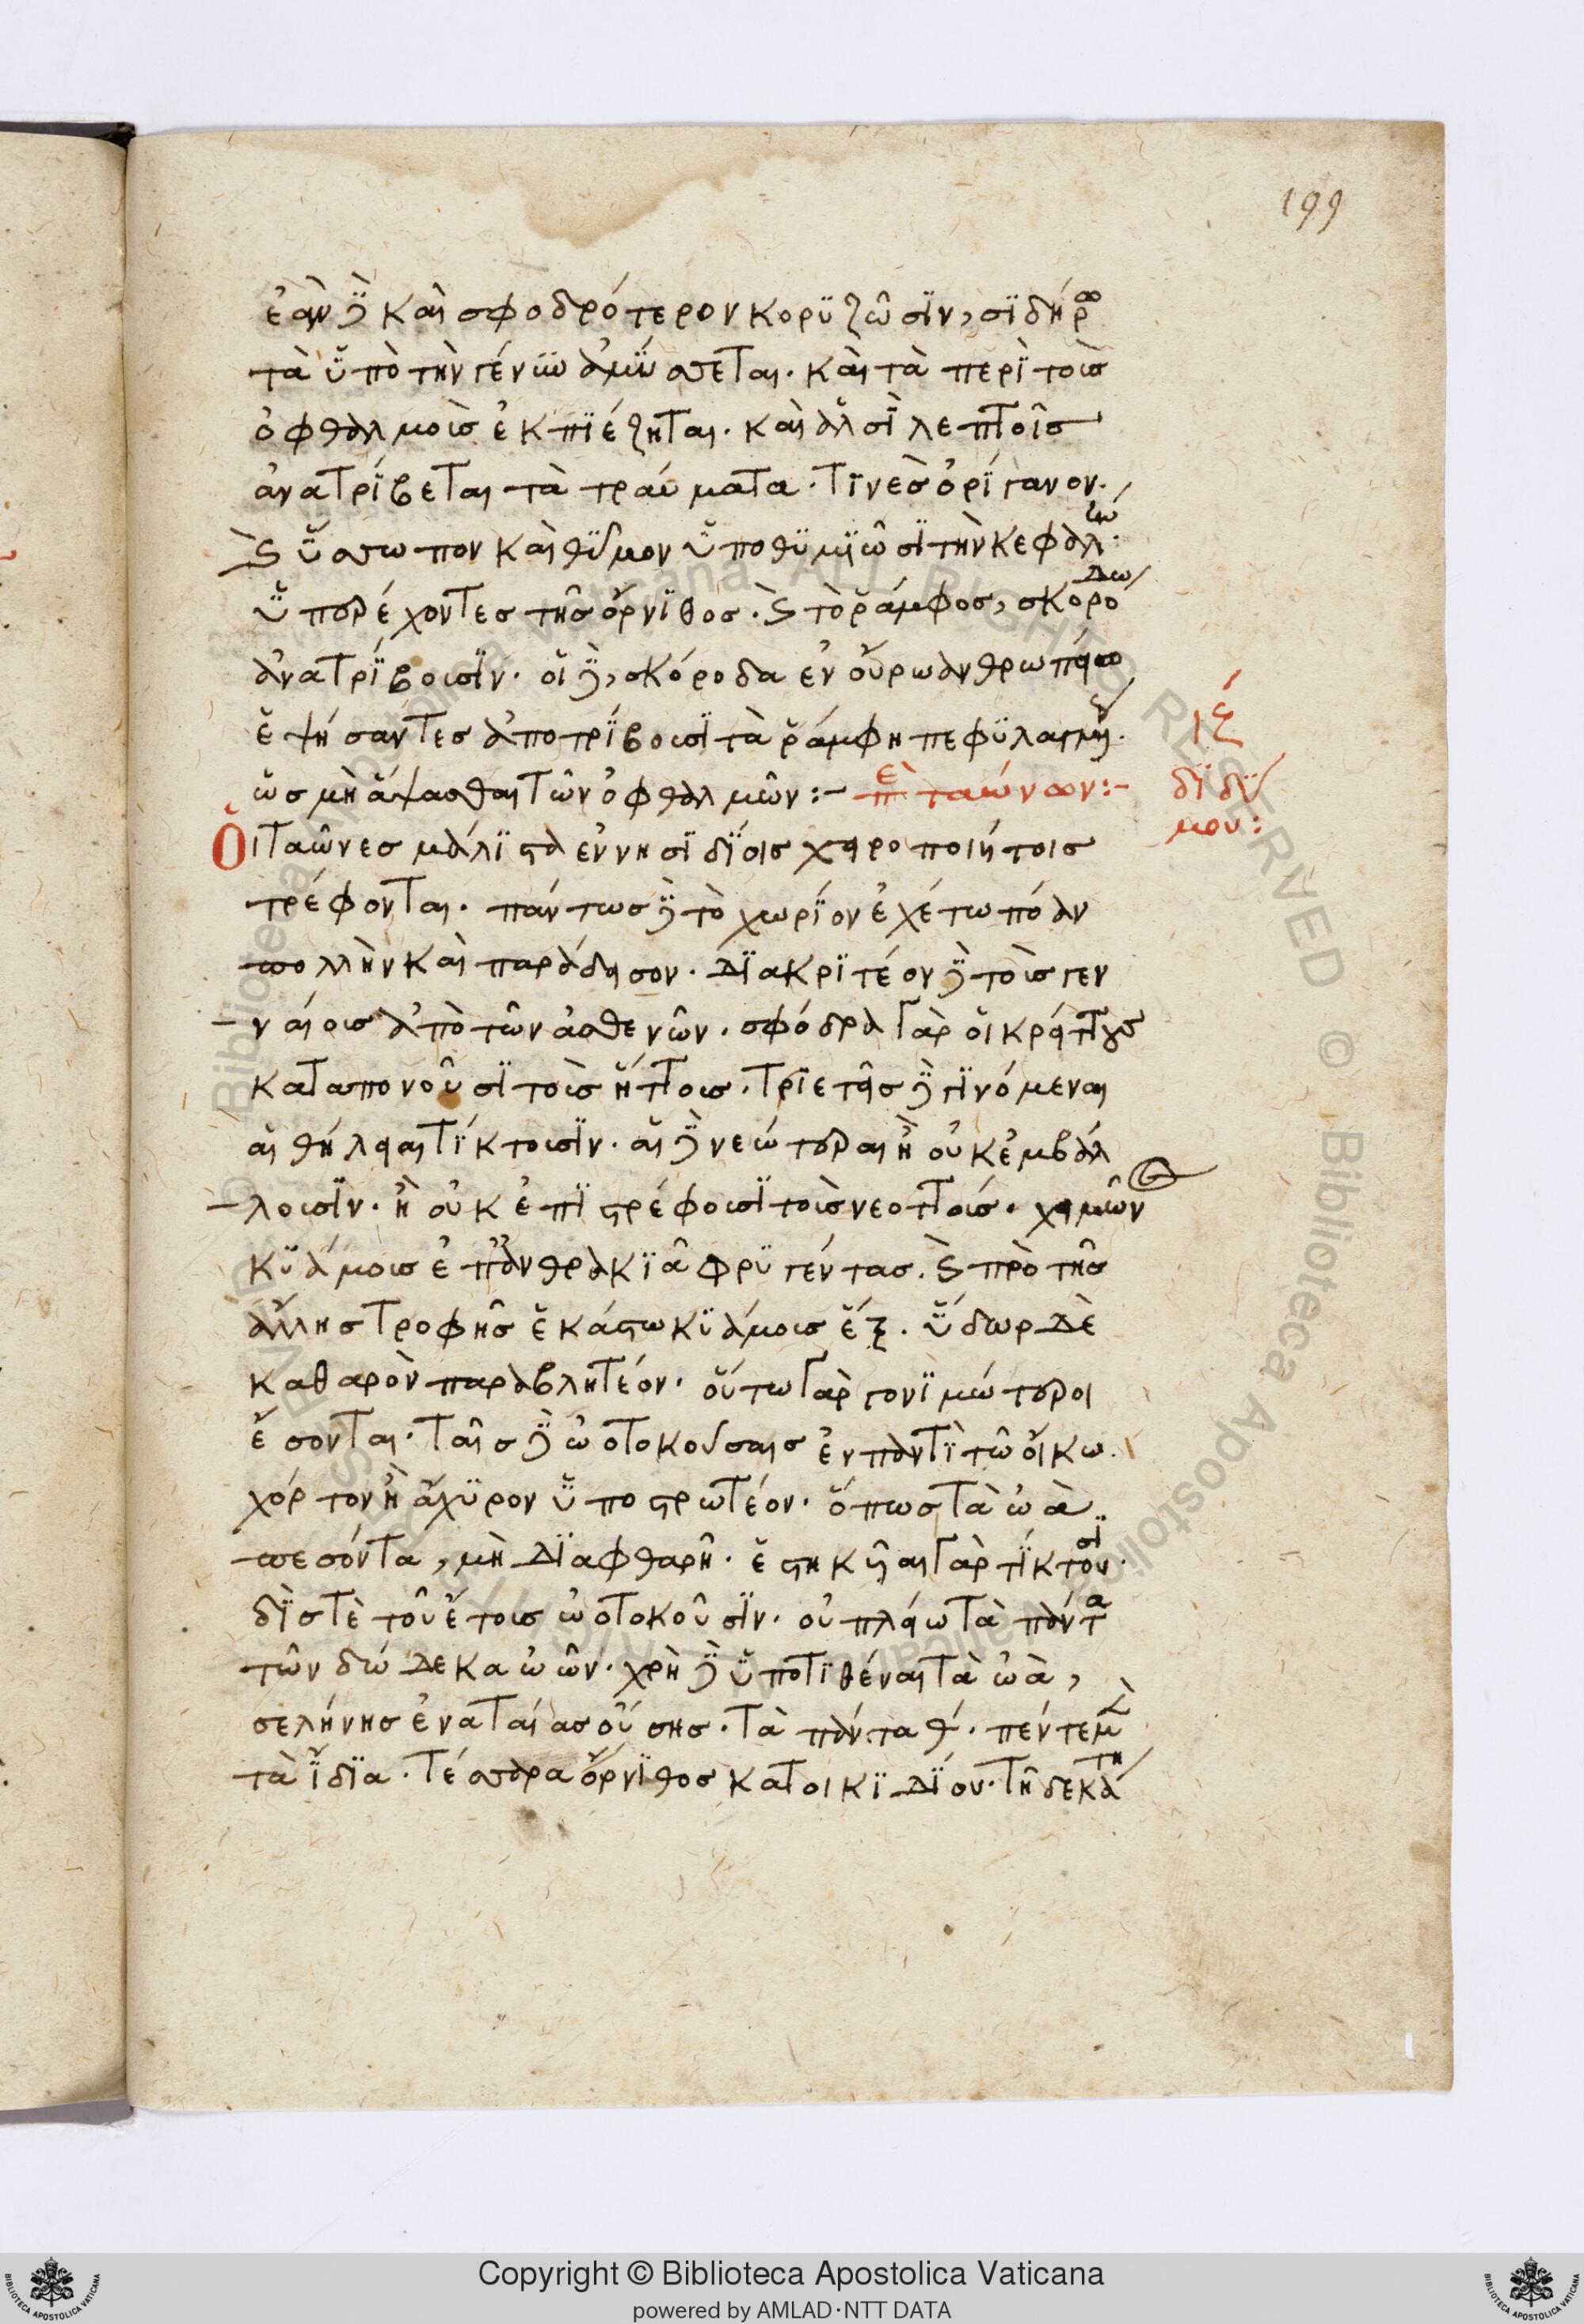 199
ἐὰν δὲ καὶ σφοδρότερον κορϋζῶσϊν, σϊδήρω
τὰ ὑπὸ τὴν γένυν ἀμύσσεται. καὶ τὰ περὶ τοὺς
ὀφθαλμοὺς ἐκπϊέζηται. καὶ ἁλσὶ λεπτοῖς
ἀνατρίβεται τὰ τραύματα. τϊνὲς ὀρίγανον.
καὶ ὕσσωπον καὶ θύμον ὑποθϋμϊῶσϊ τὴν κεφαλήν
ὑπερέχοντες τῆς ὄρνϊθος. καὶ τὸ ῥάμφος, σκορόδω
ἀνατρίβουσϊν. οἱ δὲ, σκόροδα ἐν οὔρω ἀνθρωπείω
ἑψήσαντες ἀποτρίβουσϊ τὰ ῥάμφη πεφϋλαγμένως
ὡς μὴ ἅψασθαι τῶν ὀφθαλμῶν :- περὶ ταώνων :-
ιϛ
διδύ
μου :
Οἱ ταῶνες μάλϊστα ἐν νησϊδίοις χειροποιήτοις
τρέφονται. πάντως δὲ τὸ χωρίον ἐχέτω πόαν
πολλὴν καὶ παράδεισον. Διακρϊτέον δὲ τοὺς γεν
ναίους ἀπὸ τῶν ἀσθενῶν. σφόδρα γὰρ οἱ κρείττους
καταπονοῦσϊ τοὺς ἥττους. τρϊετεῖς δὲ γϊνόμεναι
αἱ θήλειαι τίκτουσϊν. αἱ δὲ νεώτεραι ἢ οὐκ ἐμβάλ
λουσϊν. ἢ οὐκ ἐπϊστρέφουσϊ τοὺς νεοττούς. χειμῶν
κϋάμους ἐπ' ἀνθρακϊᾶ φρϋγέντας. καὶ πρὸ τῆς
ἄλλης τροφῆς ἑκάστω κϋάμους ἕξ. ὕδωρ δὲ
καθαρὸν παραβλητέον. οὕτω γὰρ γονϊμώτεροι
ἔσονται. ταῖς δὲ ὠοτοκούσαις ἐν παντὶ τῶ οἴκω.
χόρτον ἢ ἄχϋρον ὑποστρωτέον. ὅπως τὰ ὠὰ
πεσόντα, μὴ διαφθαρῆ. ἑστηκυῖαι γὰρ τίκτουσϊν.
δὶς τὲ τοῦ ἔτους ὠοτοκοῦσϊν. οὐ πλείω τὰ πάντα
τῶν δώδεκα ὠῶν. χρὴ δὲ ὑποτϊθέναι τὰ ὠὰ,
σελήνης ἐναταίας οὔσης. τὰ πάντα θ. πέντε μὲν
τὰ ἴδϊα. τέσσερα ὄρνϊθος κατοικϊδίου. τῆ δεκάτη
Copyright © Biblioteca Apostolica Vaticana
powered by AMLAD·NTT DATA